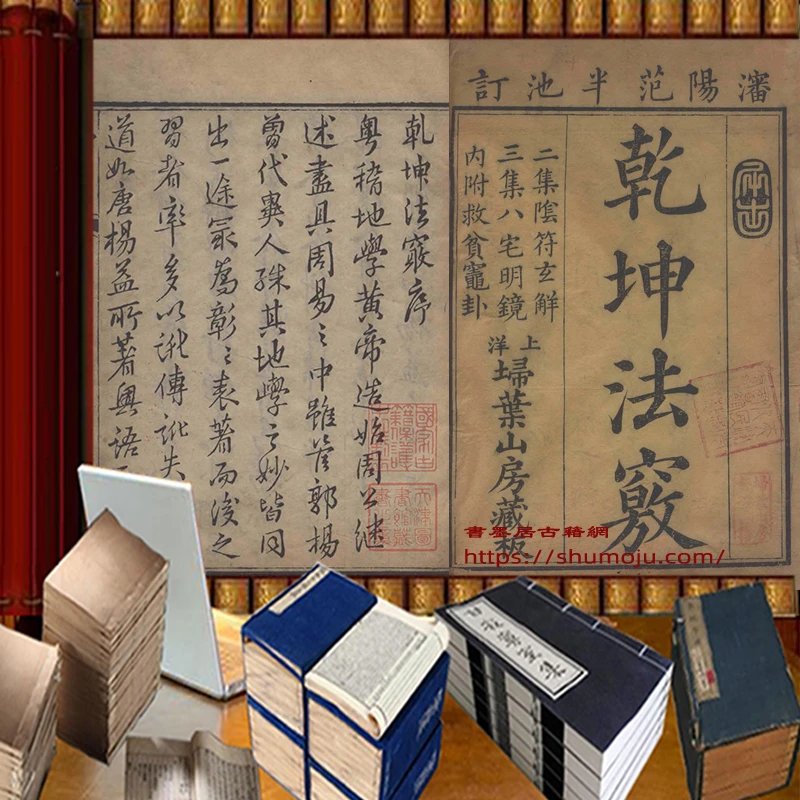 瀋陽范半池訂
乾坤法竅
二集陰符玄解
三集八宅明鏡
內附救貧竈卦
上洋
埽葉山房藏板
乾坤法竅序
粵稽地學黃帝造始周公繼
述盡具周易之中雖管郭楊
曾代異人殊其地學之妙皆同
出一途最為彰彰表著而後之
習者率多以訛傳訛失
道如唐楊益所著奧語
書墨居古籍網
https://shumoju.com/